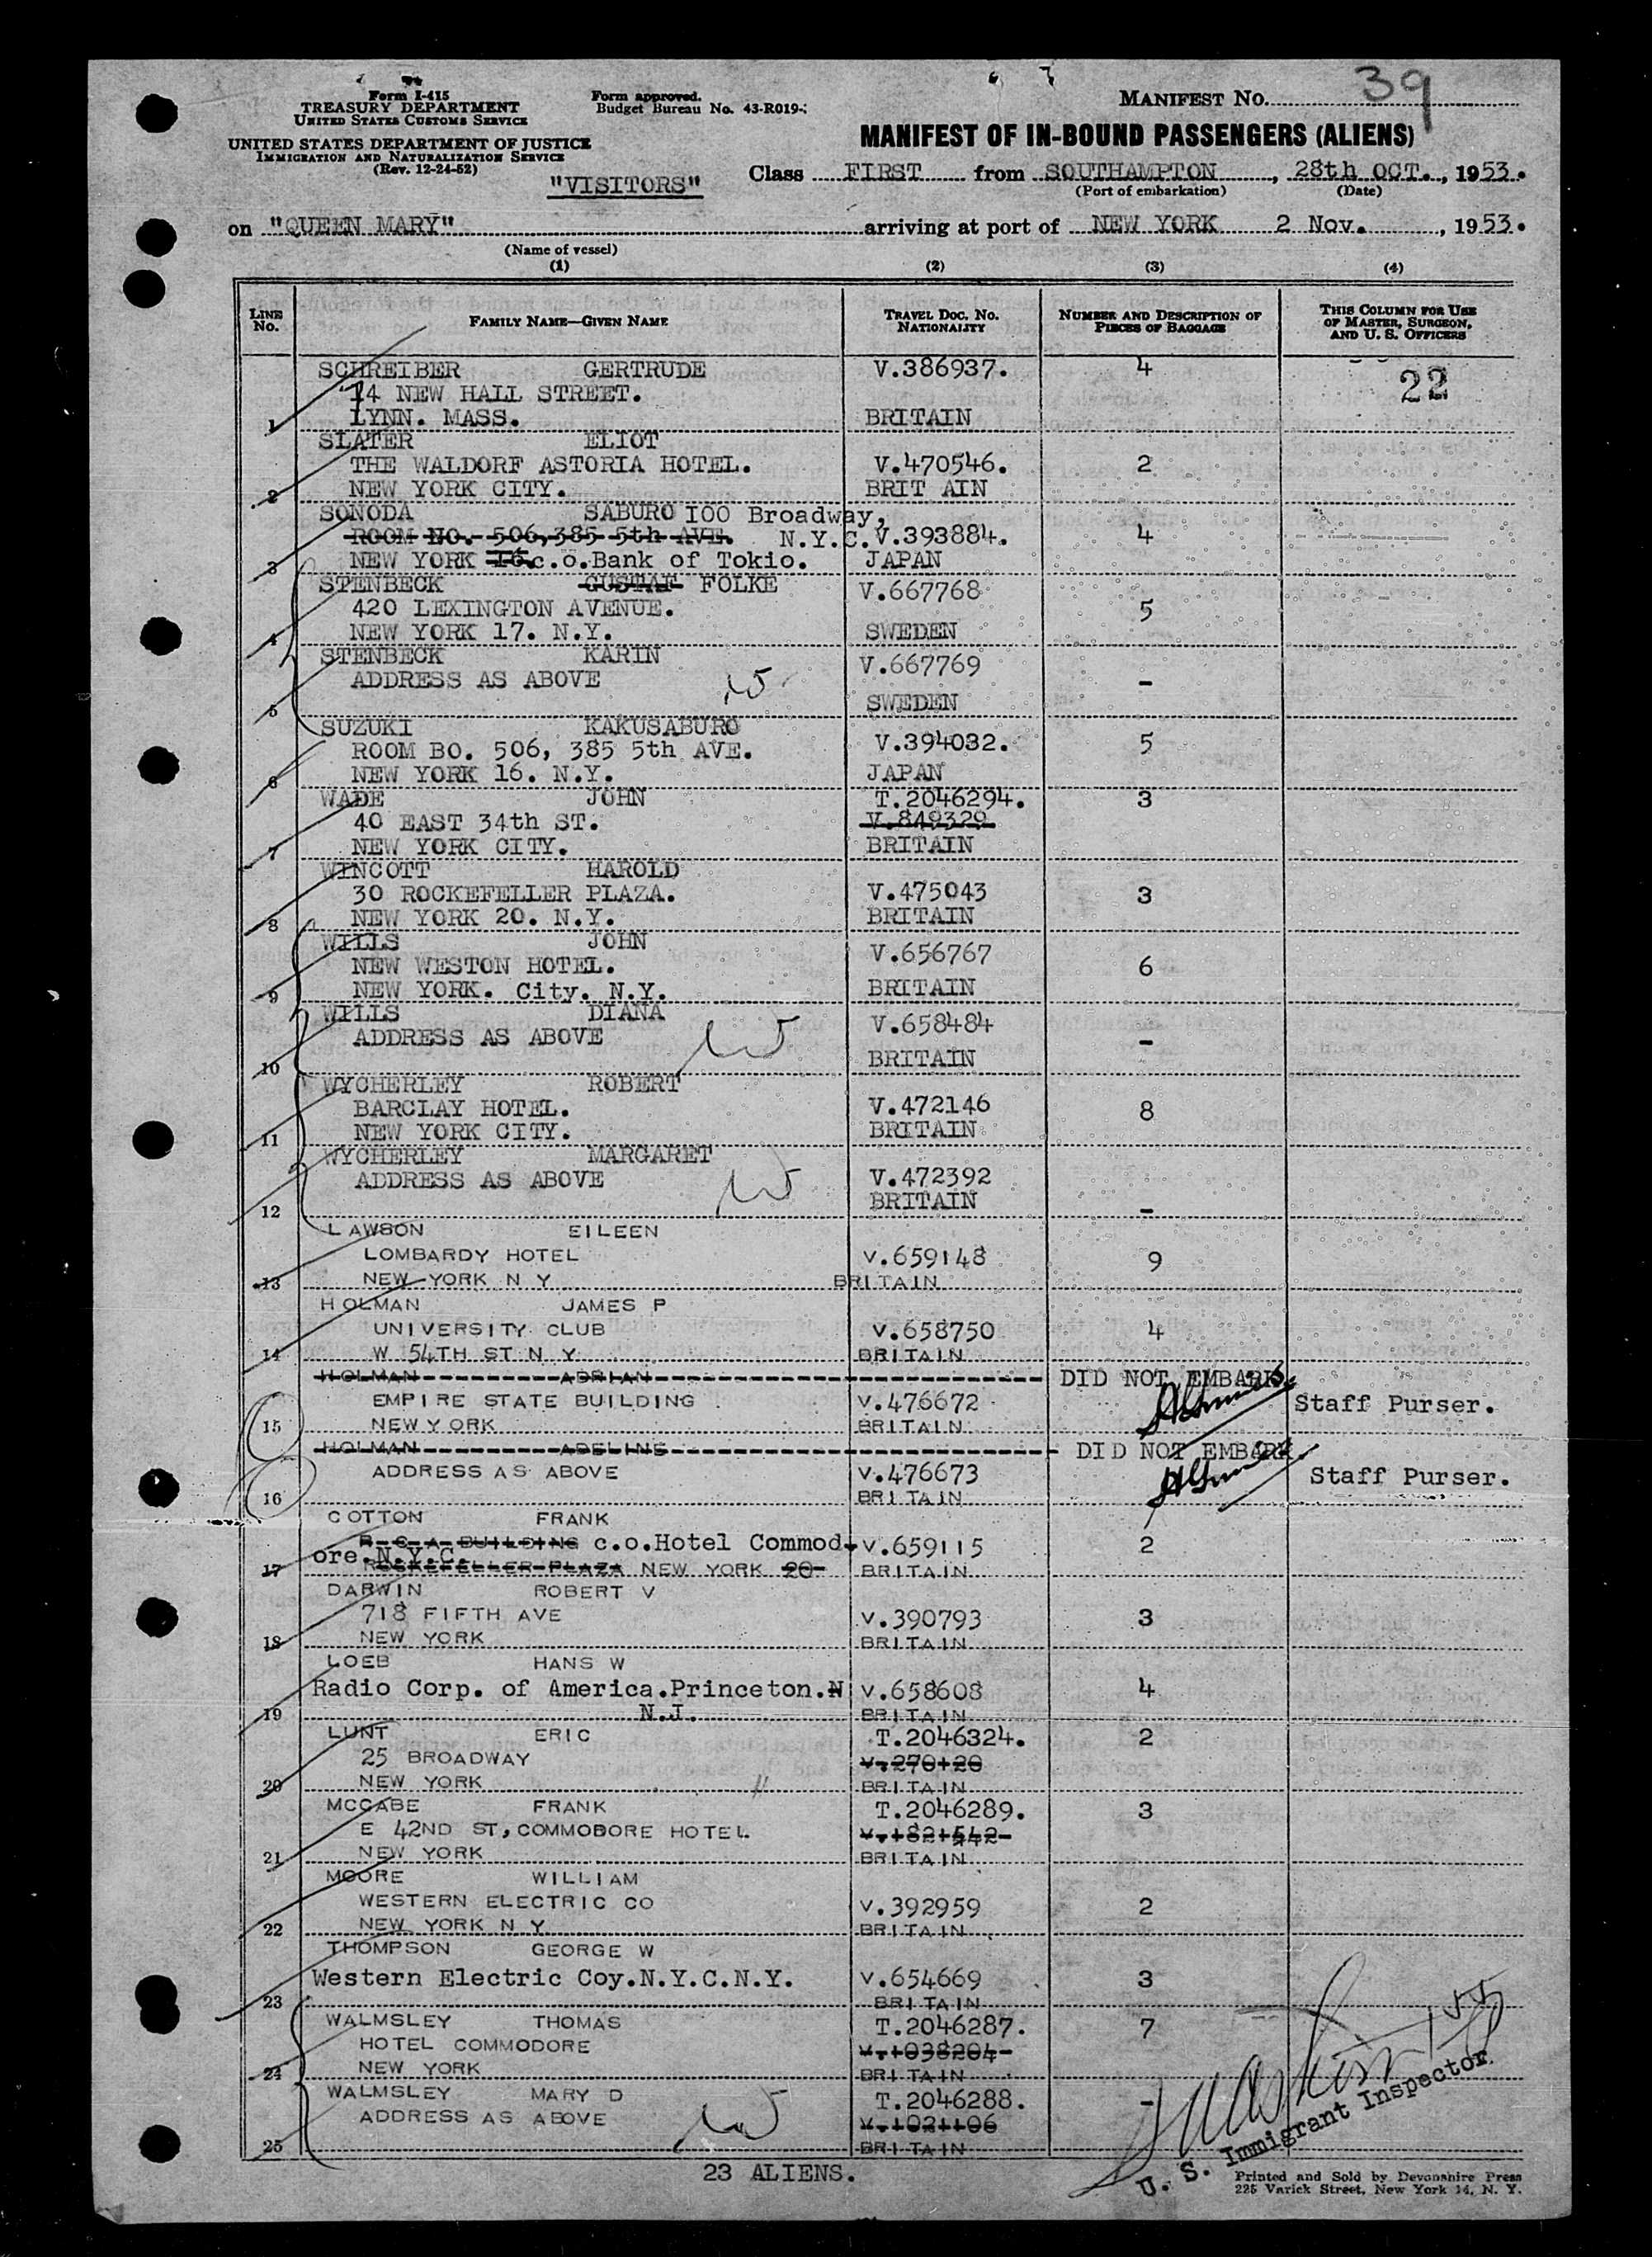 39
Form I-415
TREASURY DEPARTMENT
UNITED STATES CUSTOMS SERVICE
UNITED STATES DEPARTMENT OF JUSTICE
IMMIGRATION AND NATURALIZATION SERVICE
(Rev. 12-24-52)
Form approved.
Budget Bureau No. 43-R019-
"VISITORS"
MANIFEST NO.
MANIFEST OF IN-BOUND PASSENGERS (ALIENS)
Class FIRST from SOUTHAMPTON, 28th OCT., 1953.
(Port of embarkation) (Date)
on "QUEEN MARY" arriving at port of NEW YORK 2 Nov., 1953.
(Name of vessel)
(1) (2) (3) (4)
LINE No. FAMILY NAME—GIVEN NAME TRAVEL DOC. NO. NATIONALITY NUMBER AND DESCRIPTION OF PIECES OF BAGGAGE THIS COLUMN FOR USE OF MASTER, SURGEON, AND U. S. OFFICERS
SCHREIBER GERTRUDE V.386937. 4 22
14 NEW HALL STREET.
1 LYNN. MASS. BRITAIN
SLATER ELIOT
THE WALDORF ASTORIA HOTEL. V.470546. 2
2 NEW YORK CITY. BRIT AIN
SONODA SABURO 100 Broadway,
ROOM NO. 506,385 5th AVE. N.Y.C. V.393884. 4
3 NEW YORK 16 c.o.Bank of Tokio. JAPAN
STENBECK GUSTAF FOLKE V.667768
420 LEXINGTON AVENUE. 5
4 NEW YORK 17. N.Y. SWEDEN
STENBECK KARIN V.667769
ADDRESS AS ABOVE -
5 SWEDEN
SUZUKI KAKUSABURO
ROOM BO. 506, 385 5th AVE. V.394032. 5
6 NEW YORK 16. N.Y. JAPAN
WADE JOHN T.2046294. 3
40 EAST 34th ST. V.849329
7 NEW YORK CITY. BRITAIN
WINCOTT HAROLD
30 ROCKEFELLER PLAZA. V.475043 3
8 NEW YORK 20. N.Y. BRITAIN
WILLS JOHN V.656767
NEW WESTON HOTEL. 6
9 NEW YORK. City. N.Y. BRITAIN
WILLS DIANA V.658484
ADDRESS AS ABOVE -
10 BRITAIN
WYCHERLEY ROBERT
BARCLAY HOTEL. V.472146 8
11 NEW YORK CITY. BRITAIN
WYCHERLEY MARGARET
ADDRESS AS ABOVE V.472392
12 BRITAIN -
LAWSON EILEEN
LOMBARDY HOTEL V.659148 9
13 NEW YORK N Y BRITAIN
HOLMAN JAMES P
UNIVERSITY CLUB V.658750 4
14 W 54TH ST N Y BRITAIN
HOLMAN ADRIAN DID NOT EMBARK.
EMPIRE STATE BUILDING V.476672 Staff Purser.
15 NEW YORK BRITAIN
HOLMAN ADELINE DID NOT EMBARK.
ADDRESS AS ABOVE V.476673 Staff Purser.
16 BRITAIN
COTTON FRANK
R C A BUILDING c.o.Hotel Commod- V.659115 2
ore.N.Y.C.
17 ROCKEFELLER PLAZA NEW YORK 20 BRITAIN
DARWIN ROBERT V
718 FIFTH AVE V.390793 3
18 NEW YORK BRITAIN
LOEB HANS W
Radio Corp. of America.Princeton.N V.658608 4
19 N.J. BRITAIN
LUNT ERIC T.2046324. 2
25 BROADWAY V.270120
20 NEW YORK BRITAIN
MCCABE FRANK T.2046289. 3
E 42ND ST, COMMODORE HOTEL V.182542
21 NEW YORK BRITAIN
MOORE WILLIAM
WESTERN ELECTRIC CO V.392959 2
22 NEW YORK N Y BRITAIN
THOMPSON GEORGE W
Western Electric Coy.N.Y.C.N.Y. V.654669 3
23 BRITAIN
WALMSLEY THOMAS T.2046287. 7
HOTEL COMMODORE V.1038204
24 NEW YORK BRITAIN
WALMSLEY MARY D T.2046288. -
ADDRESS AS ABOVE V.1021106
25 BRITAIN
23 ALIENS.
U. S. Immigrant Inspector
Printed and Sold by Devonshire Press
225 Varick Street, New York 14, N. Y.